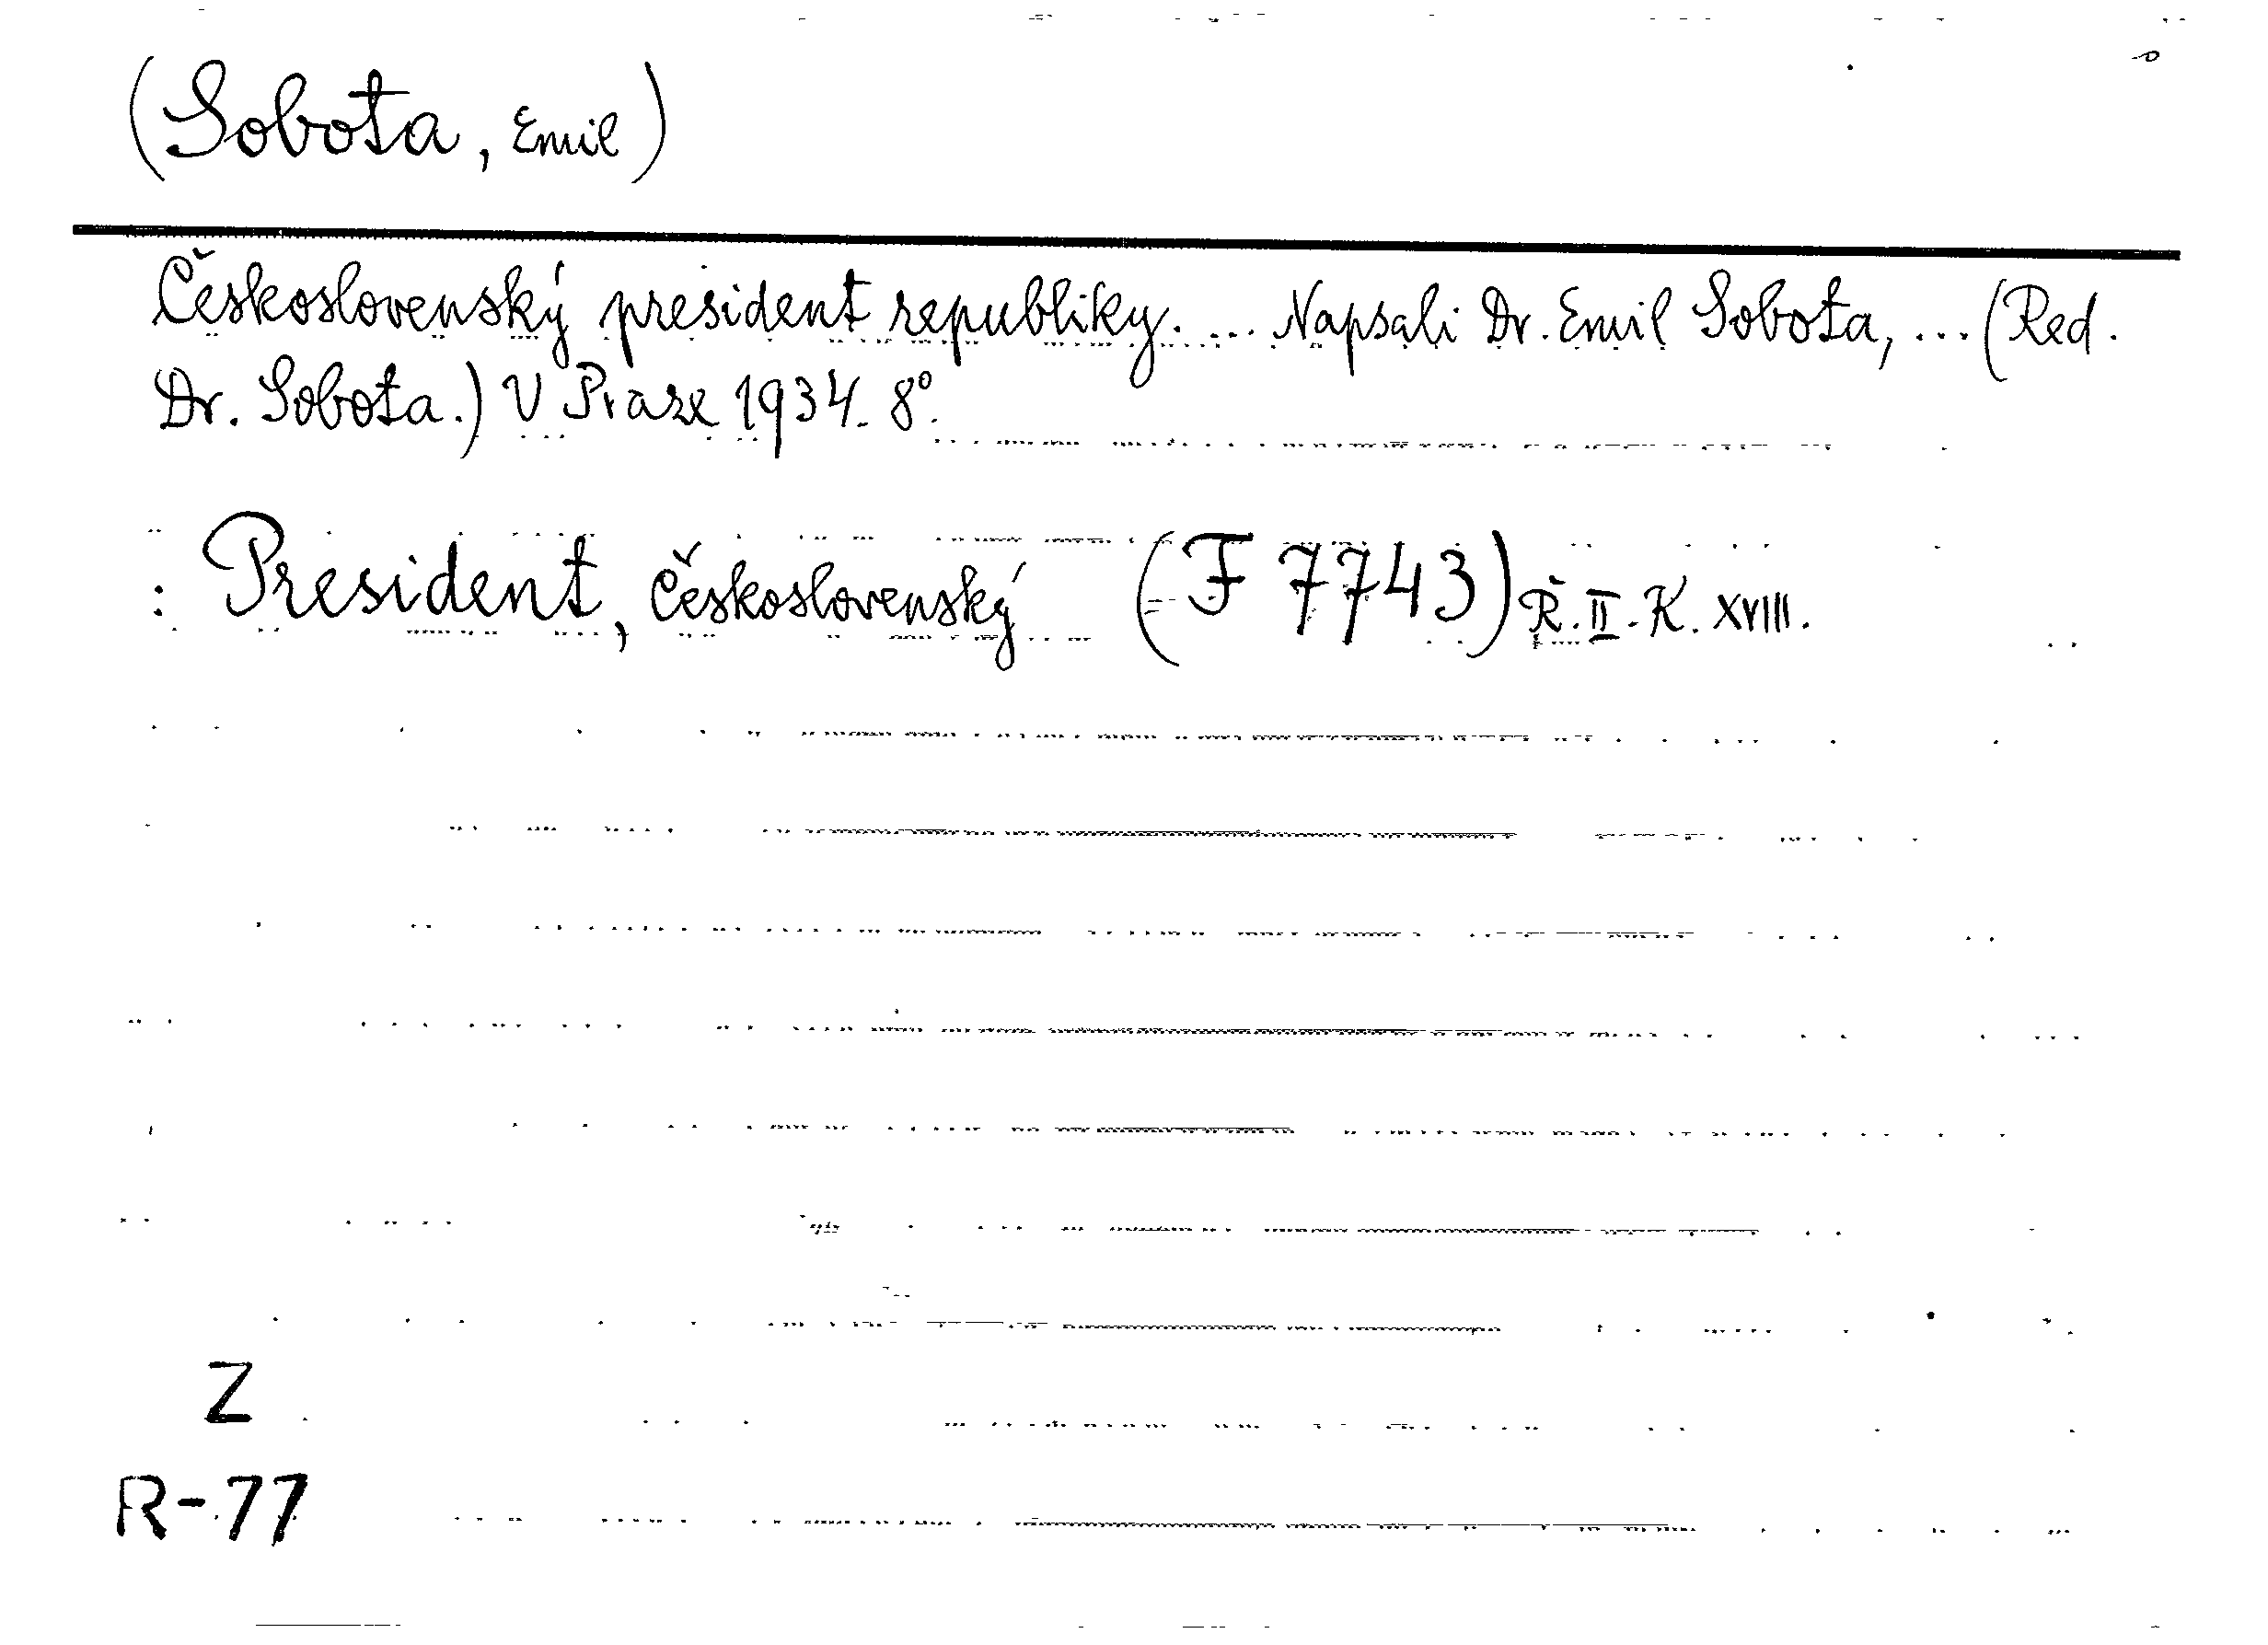 (Sobota, Emil)
Československý president republiky. ... Napsali Dr. Emil Sobota, ... (Red.
Dr. Sobota.) V Praze 1934. 8°.
: President, československý (F 7743) Ř. II. K. XVIII.
Z
R-77